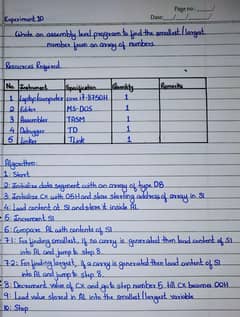 Page no:
Date:
Experiment 10
Write an assembly level program to find the smallest/largest
number from an array of numbers.
Resources Required
No. Instrument Specification Quantity Remarks
1 Laptop/computer core i7-8750H 1
2 Editor MS-DOS 1
3 Assembler TASM 1
4 Debugger TD 1
5 Linker TLink 1
Algorithm:
1: Start
2: Initialize data segment with an array of type DB
3: Initialize CX with 05H and store starting address of array in SI
4: Load content at SI and store it inside AL
5: Increment SI
6: Compare AL with contents of SI
7.1: For finding smallest, if no carry is generated then load content of SI
into AL and jump to step 8.
7.2: For finding largest, if a carry is generated then load content of SI
into AL and jump to step 8.
8: Decrement value of CX and go to step number 5 till CX becomes 00H
9: Load value stored in AL into the smallest/largest variable
10: Stop